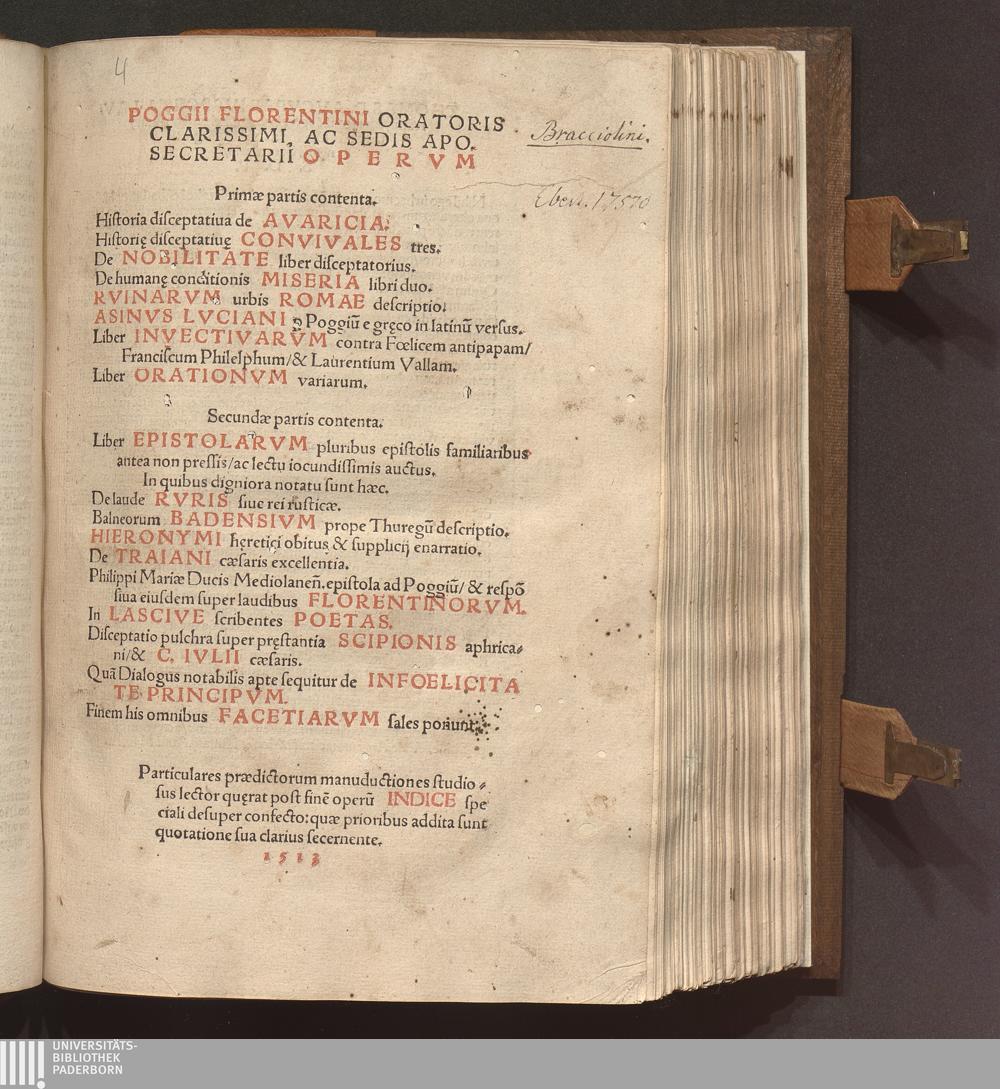 4
POGGII FLORENTINI ORATORIS
CLARISSIMI, AC SEDIS APO.
SECRETARII OPERVM
Bracciolini.
Primæ partis contenta.
Historia disceptatiua de AVARICIA.
Historię disceptatiuę CONVIVALES tres.
De NOBILITATE liber disceptatorius.
De humanę conditionis MISERIA libri duo.
RVINARVM urbis ROMAE descriptio.
ASINVS LVCIANI ꝑ Poggiū e gręco in latinū versus.
Liber INVECTIVARVM contra Fœlicem antipapam/
Franciscum Philelphum/& Laurentium Vallam.
Liber ORATIONVM variarum.
Secundæ partis contenta.
Liber EPISTOLARVM pluribus epistolis familiaribus
antea non pressis/ac lectu iocundissimis auctus.
In quibus digniora notatu sunt hæc.
De laude RVRIS siue rei rusticæ.
Balneorum BADENSIVM prope Thuregū descriptio.
HIERONYMI hęretici obitus & supplicij enarratio.
De TRAIANI cæsaris excellentia.
Philippi Mariæ Ducis Mediolaneñ. epistola ad Poggiū/ & respō
siua eiusdem super laudibus FLORENTINORVM.
In LASCIVE scribentes POETAS.
Disceptatio pulchra super pręstantia SCIPIONIS aphrica⸗
ni/& C. IVLII cæsaris.
Quā Dialogus notabilis apte sequitur de INFOELICITA
TE PRINCIPVM.
Finem his omnibus FACETIARVM sales ponunt.
Particulares prædictorum manuductiones studio⸗
sus lector quęrat post finē operū INDICE spe
ciali desuper confecto: quæ prioribus addita sunt
quotatione sua clarius secernente.
1513
UNIVERSITÄTS-
BIBLIOTHEK
PADERBORN